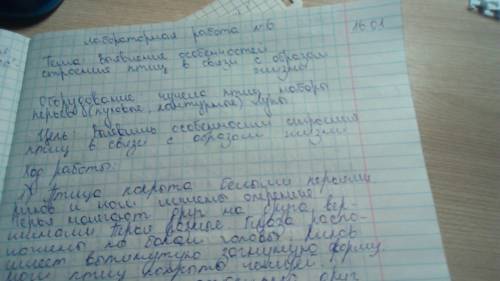 Лабораторная работа №6 16.01
Тема: Выявление особенностей
строения птиц в связи с образом
жизни
Оборудование чучела птиц, наборы
перьев (пуховые, контурные) лупы
Цель: Выявить особенности строения
птиц в связи с образом жизни
Ход работы:
1) Птица покрыта белыми перьями
и ноги лишены оперения!
Перья налегают друг на друга вер-
шинами. Перья разные. Глаза распо-
ложены по бокам головы. Клюв
имеет вытянутую загнутую форму.
Ноги птиц покрыты
друг